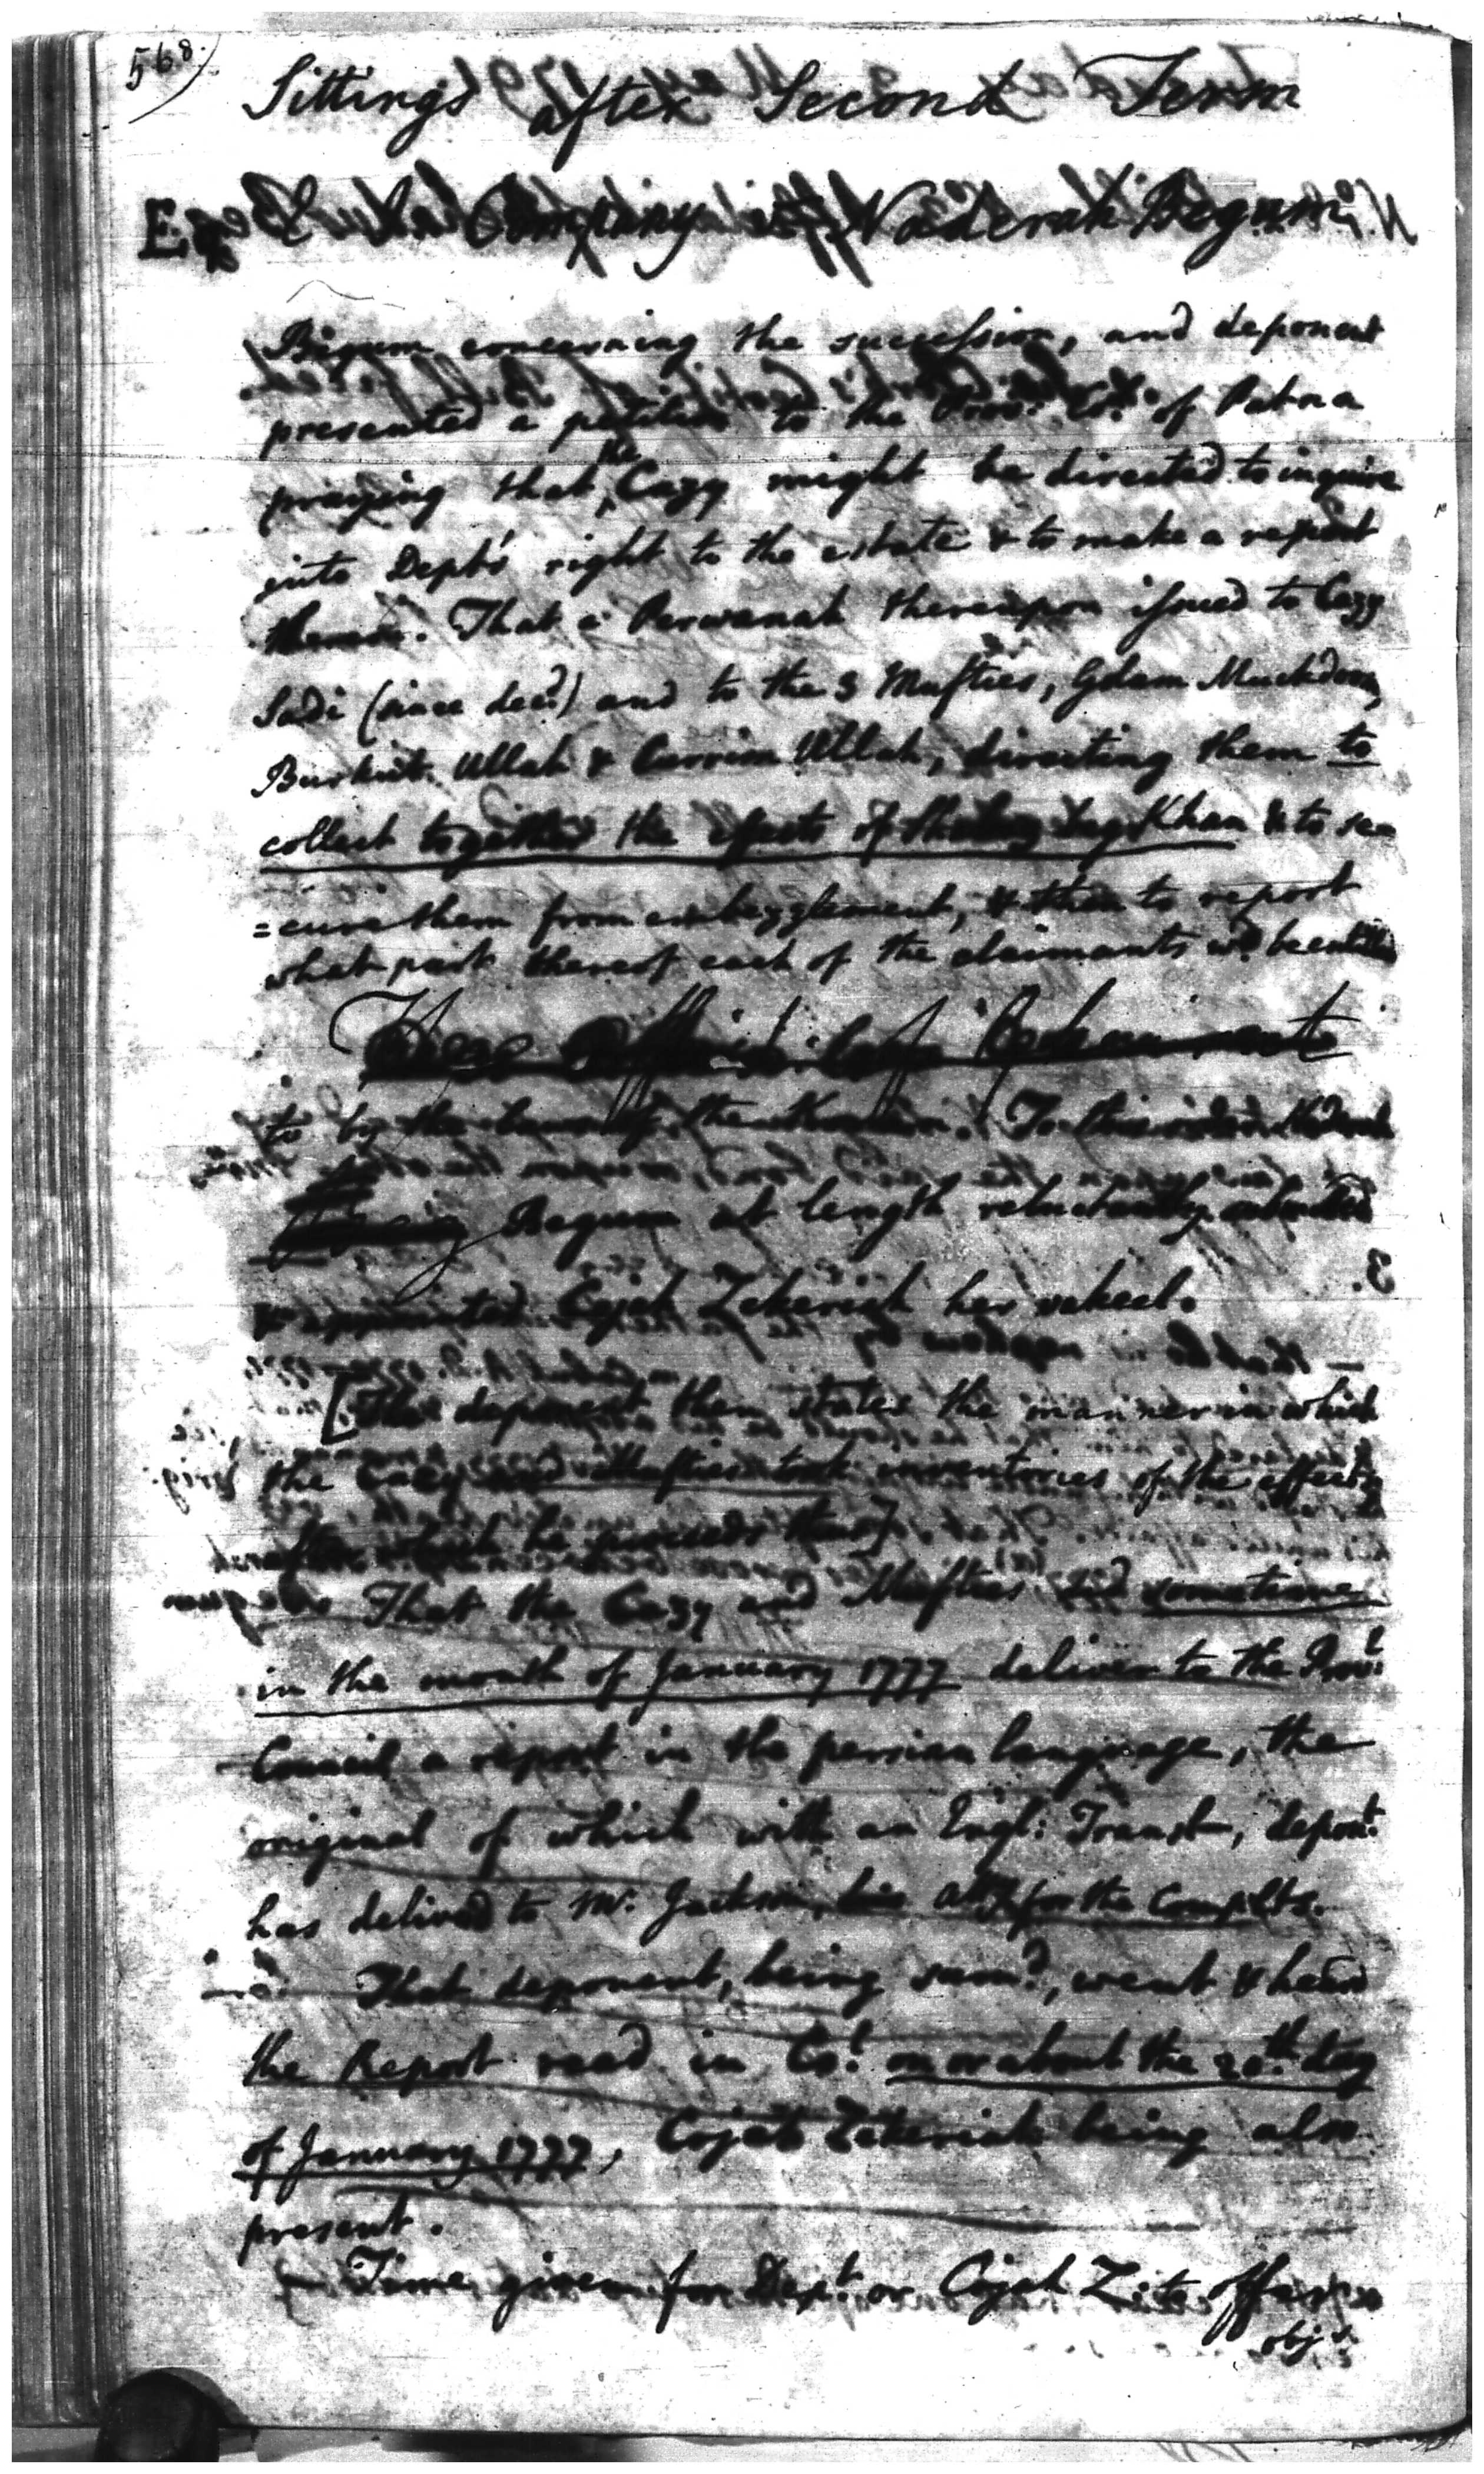 568.
Sittings after Second Term
E. I. Company Naderah Begum
Begum concerning the succession, and deponent
presented a petition to the Prov:l Co:l of Patna
praying that the Cazy might be directed to inquire
into Dept's right to the estate & to make a report
thereon. That a Perwanah thereupon issued to Cazy
Sadi (since dec:d) and to the 3 Mufties, Golam Muckdoom,
Burkut Ullah & Carrim Ullah, directing them to
collect together the effects of Beg Khan & to se
=cure them from embezzlement, & then to report
what part thereof each of the claimants w:d be entitled
to by the law of the Khoran. To this order
Begum at length reluctantly submitted
& appointed Cojah Zekeriah her vakeel.
[The deponent then states the manner in which
the Cazy and Mufties took inventories of the effects
after which he proceeds thus]
That the Cazy and Mufties did sometime
in the month of January 1777 deliver to the Prov:l
Council a report in the persian language, the
original of which with an Engl: Transl:, depon:t
has deliver'd to Mr. Jackson, Att:y for the Compl:ts.
That deponent, being sum:d, went & heard
the Report read in Co:l on or about the 20:th day
of January 1777, Cojah Zekeriah being also
present.
Time given for Dep:t or Cojah Z: to offer
obj:s